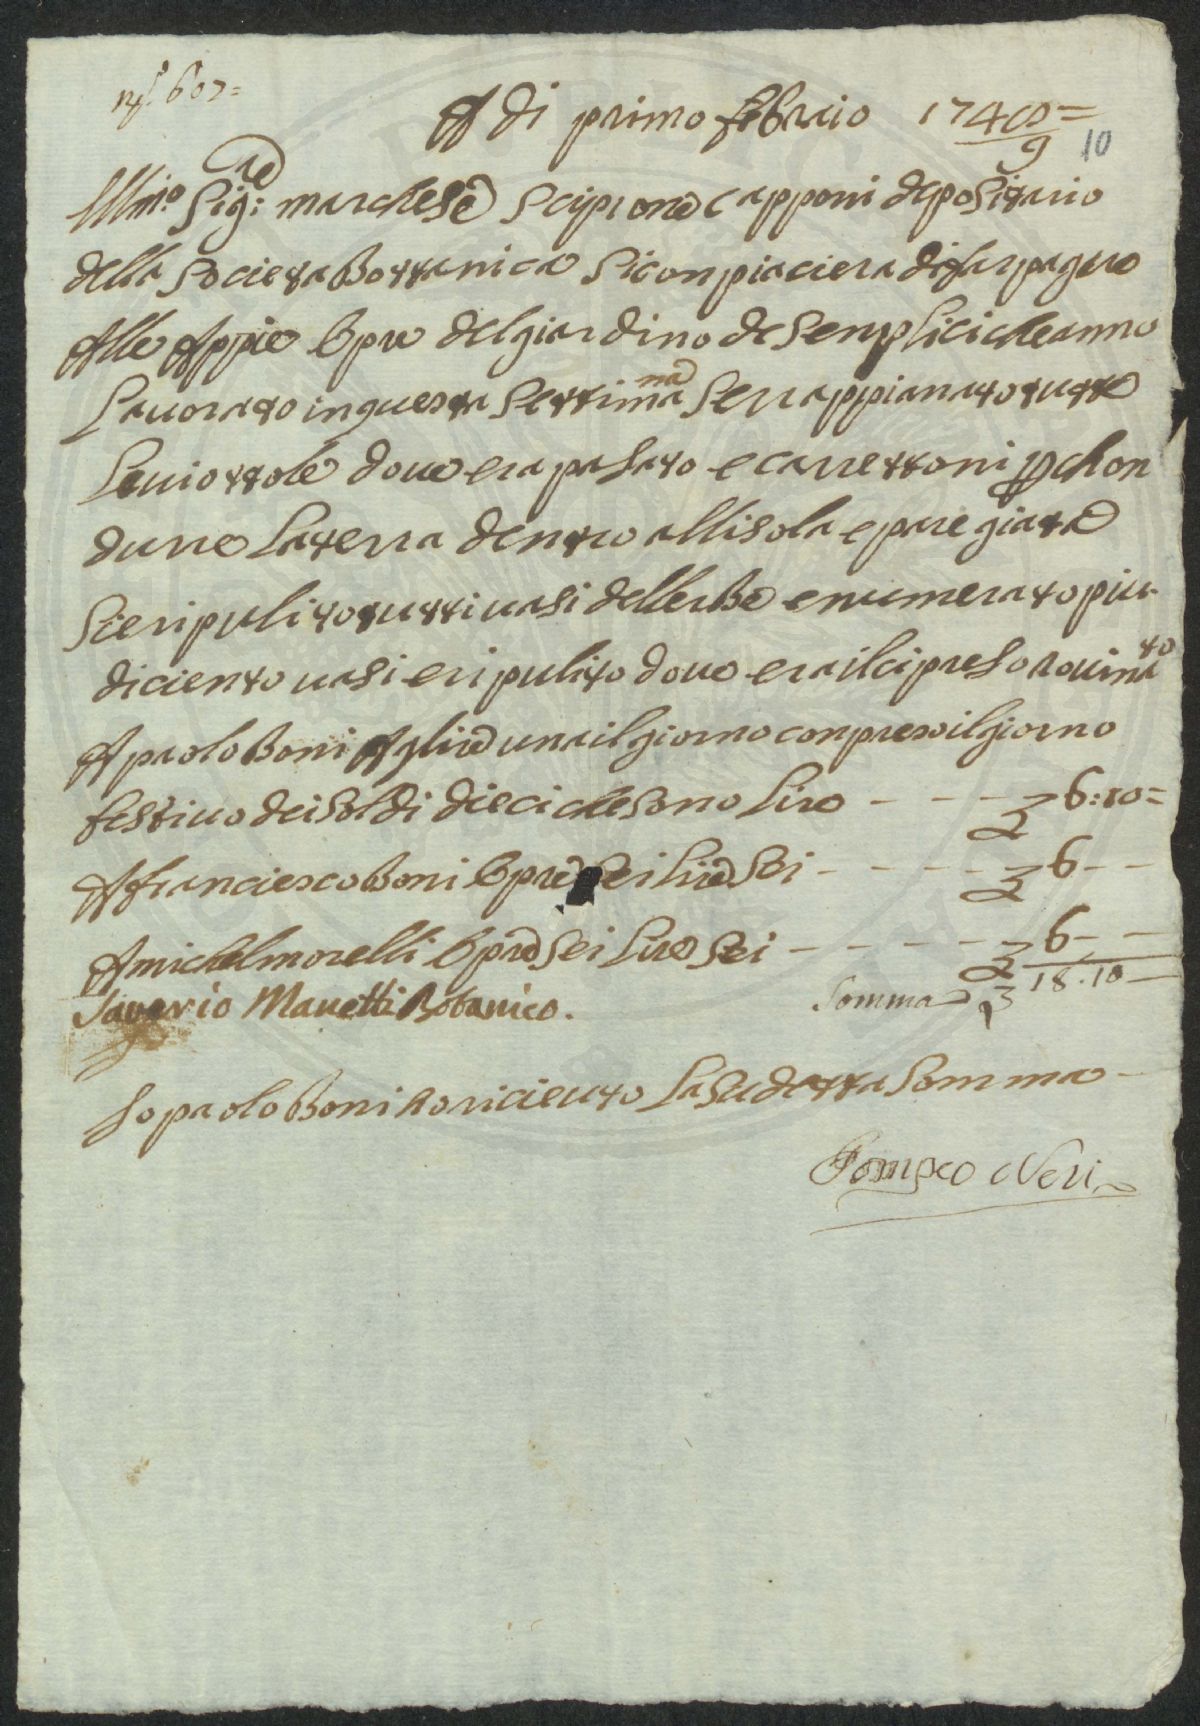 nº. 607=
A di primo febraio 1740=
9 10
Illmo. Sigre: marchese Scipione Capponi depositario
della Societa Bottanica Si conpiaciera di far pagare
Alle Appie Opre del giardino de Senplici che anno
Lauorato in questa Settimana Se rappianato tutte
Le uiottole doue era pasato e carrettoni p chon
durre La terra dentro all isola e pare giata
Sie ripulito tutti uasi dell erbe e numerato piu
di ciento uasi e ripulito doue era il cipreso rouinato
A paolo Boni A lire una il giorno conpreso il giorno
festiuo dei soldi dieci che sono Lire - - - 6:10=
A franciesco Boni Opre Sei Lire Sei - - - - 6 - -
A michel morelli Opre Sei Lire Sei - - - - - 6 - -
Somma 18.10 -
Saverio Manetti Botanico.
Io paolo Boni ho riceuto La Sudetta Somma -
Pompeo Neri